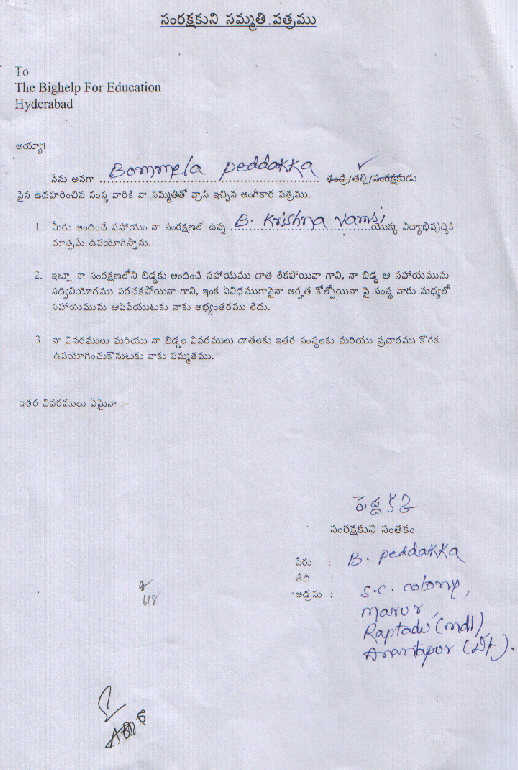 సంరక్షకుని సమ్మతి పత్రము
To
The Bighelp For Education
Hyderabad
అయ్యా!
నేను అనగా Bommela peddakka తండ్రి/తల్లి/సంరక్షకుడు
పైన ఉదహరించిన సంస్థ వారికి నా సమ్మతితో వ్రాసి ఇచ్చిన అంగీకార పత్రము.
1. మీరు అందించే సహాయం నా సంరక్షణలో ఉన్న B. Krishna vamsi యొక్క విద్యాభివృద్ధికి
మాత్రమే ఉపయోగిస్తాను.
2. ఇట్లా నా సంరక్షణలోని బిడ్డకు అందించే సహాయము దాత లేకపోయినా గాని, నా బిడ్డ ఆ సహాయమును
సద్వినియోగము పరచకపోయినా గాని, ఇంక ఏవిధముగానైనా అర్హత కోల్పోయినా పై సంస్థ వారు మధ్యలో
సహాయమును ఆపివేయుటకు నాకు అభ్యంతరము లేదు.
3. నా వివరములు మరియు నా బిడ్డల వివరములు దాతలకు ఇతర సంస్థలకు మరియు ప్రచారము కొరకు
ఉపయోగించుకొనుటకు నాకు సమ్మతము.
ఇతర వివరములు ఏమైనా :-
పెద్దక్క
సంరక్షకుని సంతకం
పేరు : B. peddakka
తేది :
అడ్రసు : S.C. colony,
marur,
Raptadu (mdl),
Anantapur (Dt).